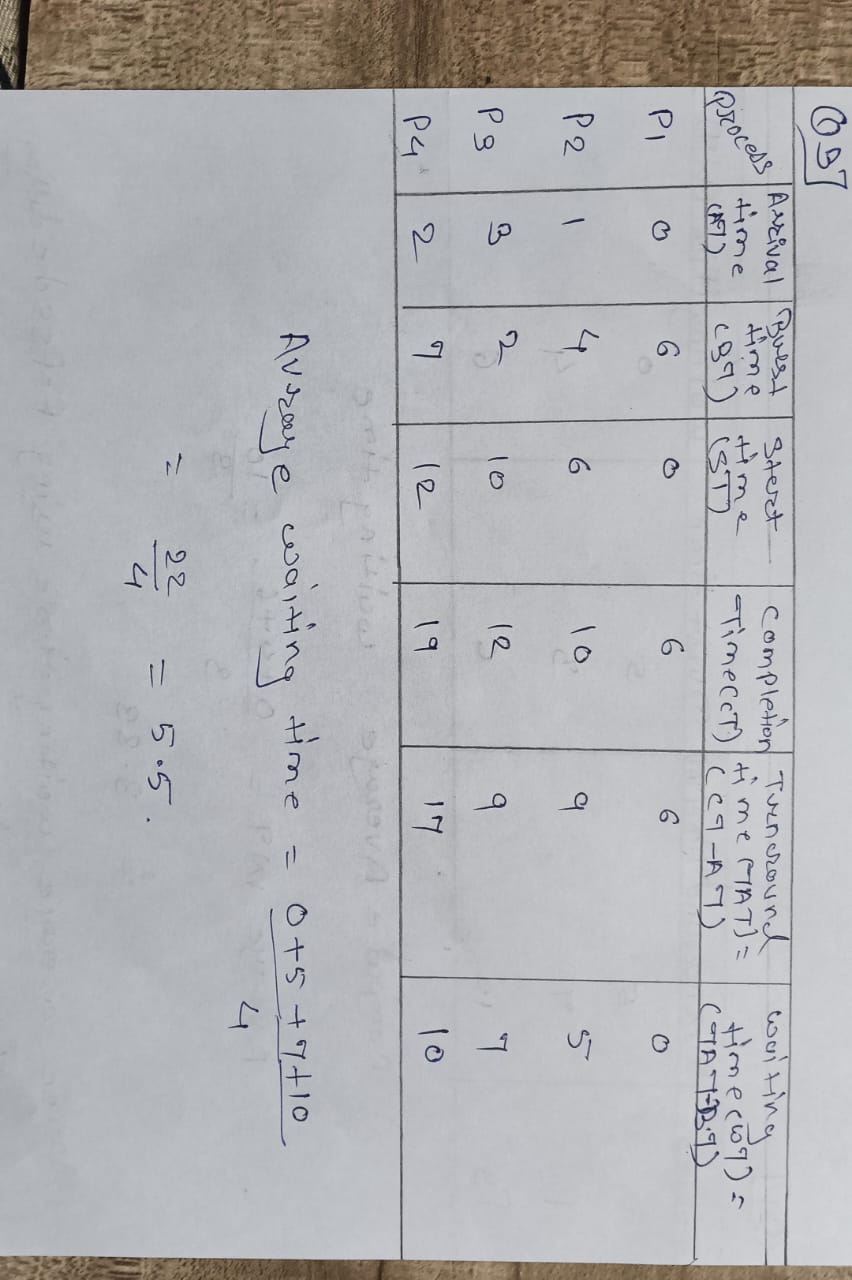 Q3)
Process | Arrival time (AT) | Burst time (BT) | Start time (ST) | Completion Time (CT) | Turnaround time (TAT) = (CT-AT) | waiting time (WT) = (TAT-BT)
P1 | 0 | 6 | 0 | 6 | 6 | 0
P2 | 1 | 4 | 6 | 10 | 9 | 5
P3 | 3 | 2 | 10 | 12 | 9 | 7
P4 | 2 | 7 | 12 | 19 | 17 | 10
Average waiting time = 0+5+7+10 / 4
= 22/4 = 5.5.